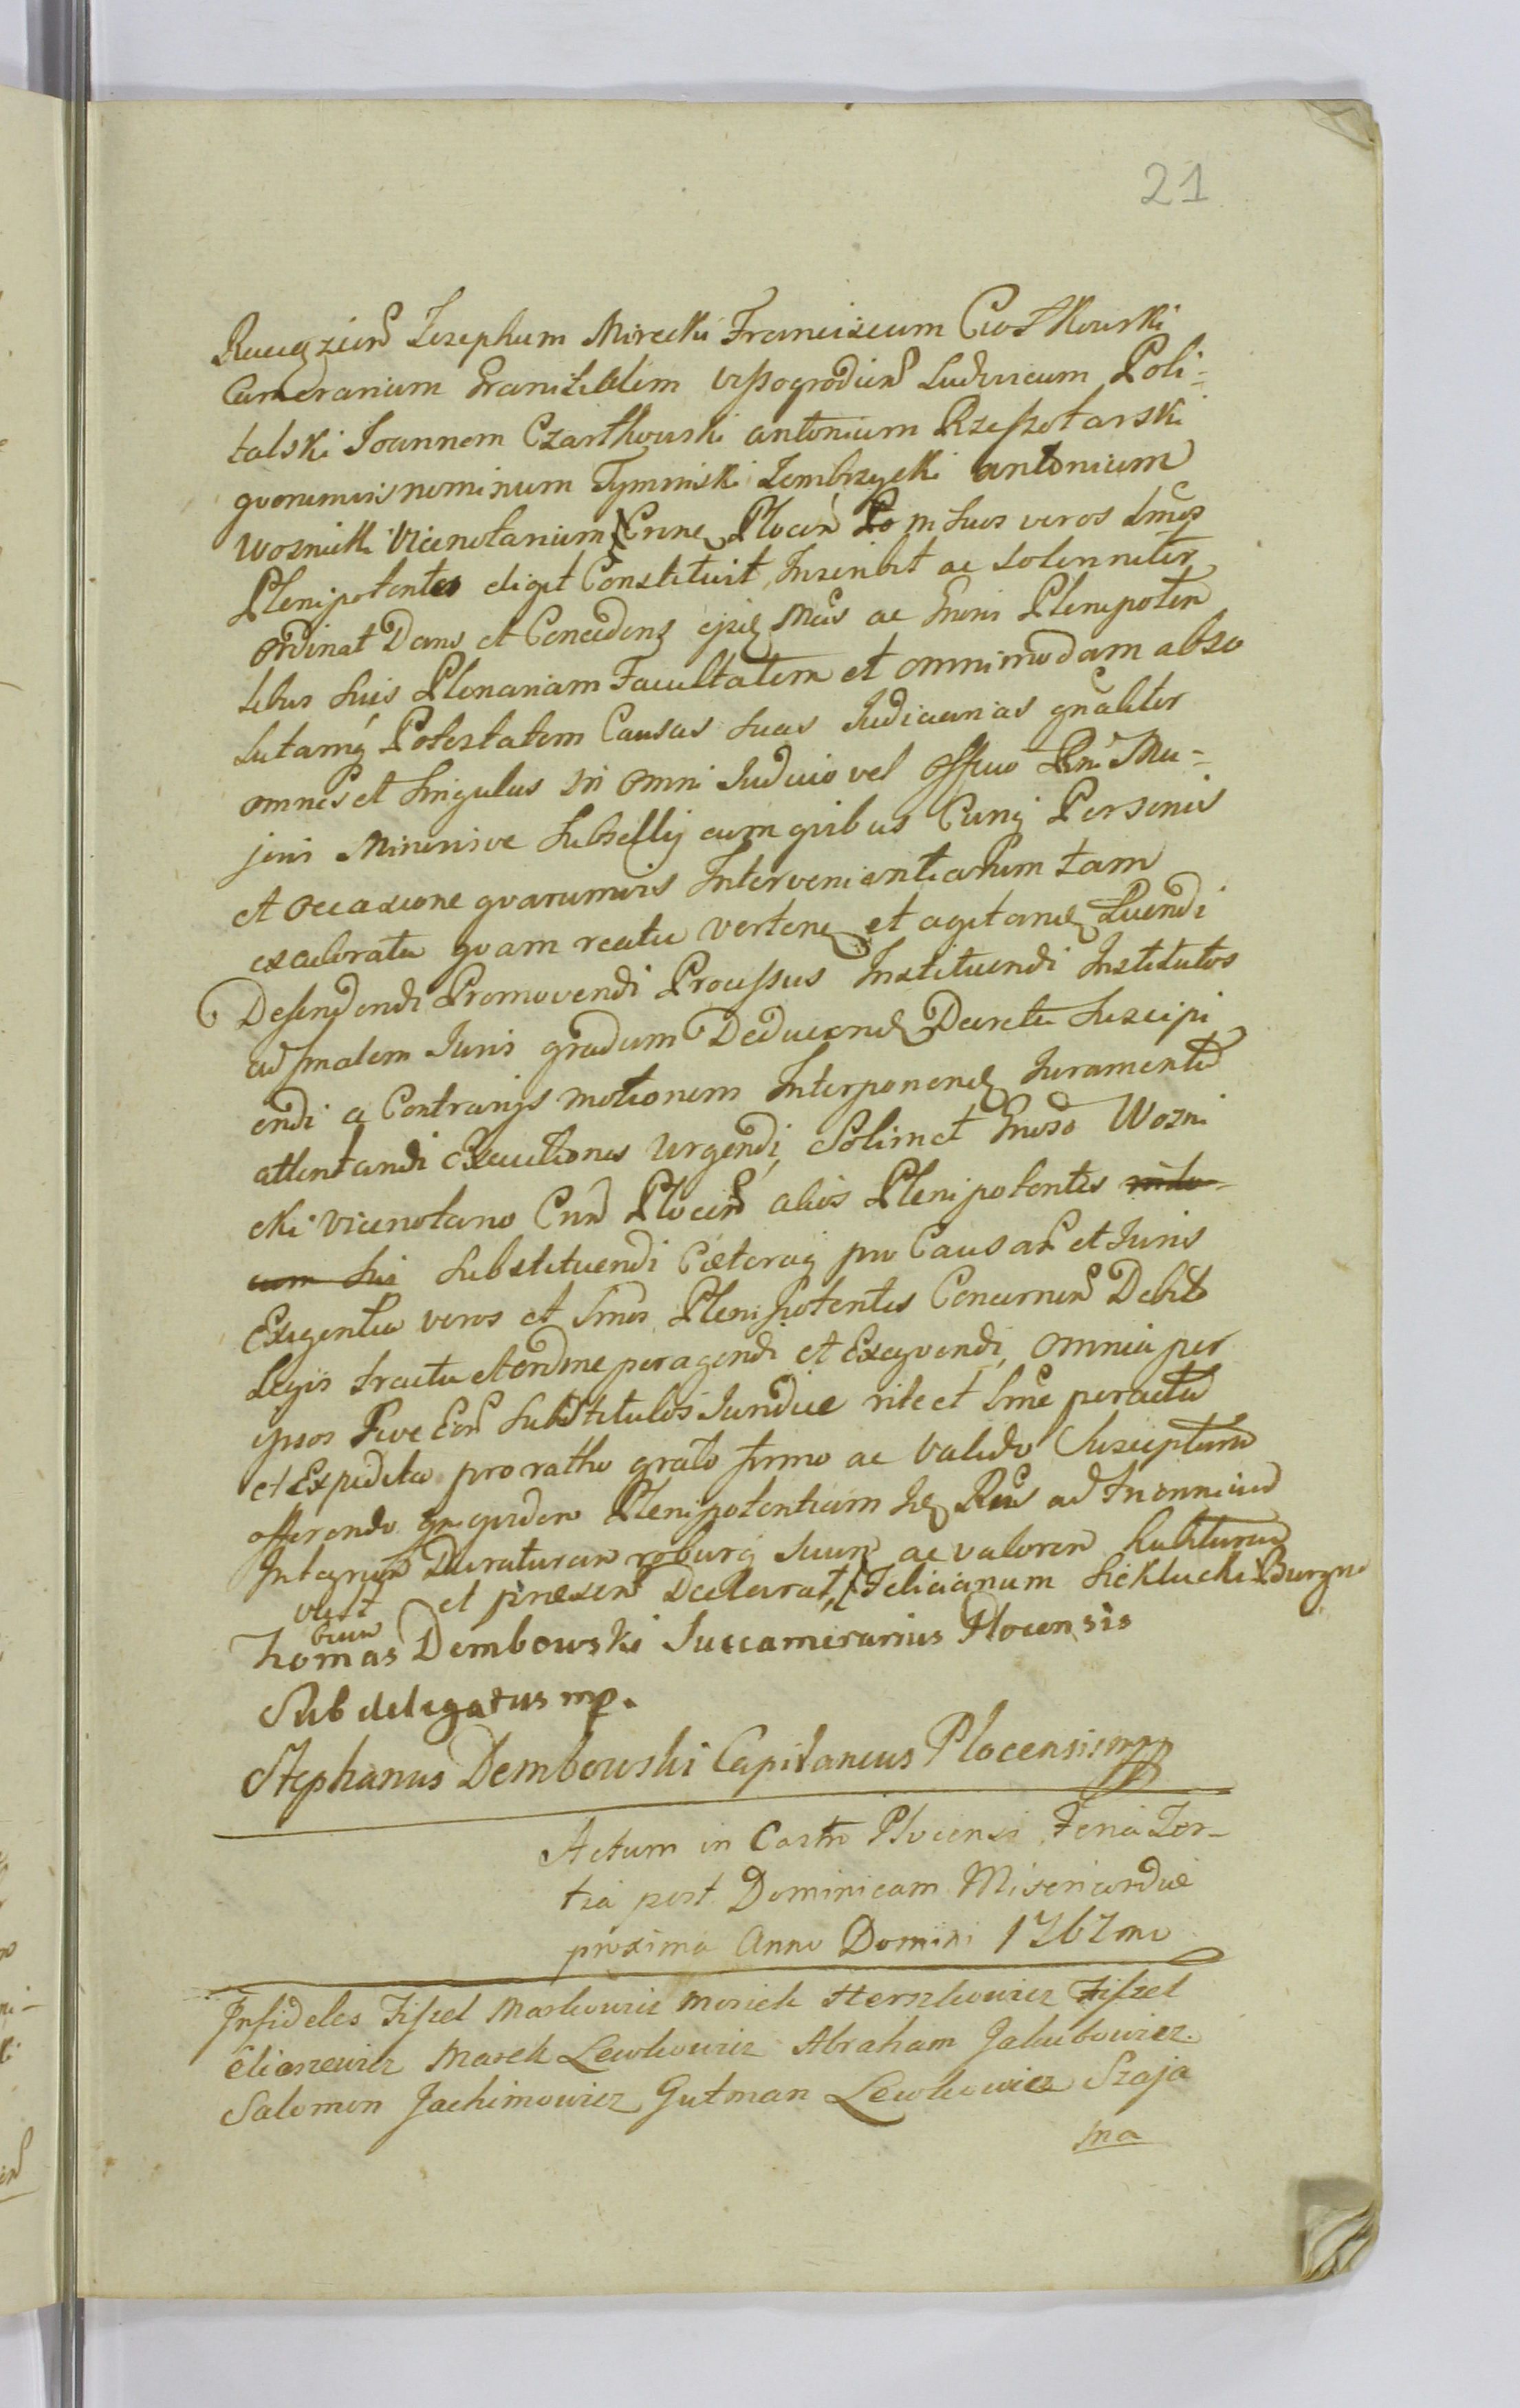 21
Josephum Mirecki Franciscum Ciotkowski
Camerarium Granitialem Wyssogrodien Ludovicum Poli-
talski Joannem Czartkowski antonium Rzeszotarski
quorumvis nominum Tyminski Zembrzycki antonium
Wosnicki Vicenotarium Plocen in suos veros
Plenipotentes eligit Constituit Inscribit ac Solenniter
Ordinat Dans et Concedens ac Plenipoten
tibus suis Plenariam Facultatem et omnimodam abso
lutamq Potestatem Causas suas Judiciarias gnaliter
omnes et singulas in omni Judicio vel officio Rni Ma-
joris Minorisve Subsellij cum quibus Cunq Personis
et occasione quarumvis Intervenientiarum tam
exactoratu quam reatu verten et agitan Luendi
Defendendi Promovendi Processus Instituendi Institutos
ad finalem Juris gradum Deducend Decreta Suscipi
endi a Contrarijs motionem Interponend Juramenta
attentandi executiones Urgendi, Solimet Wozni
cki Vicenotario Plocen alios Plenipotentes
substituendi Caeteraq pro Causar et Juris
Exigentia veros et Plenipotentes Concernen Debito
Legis tractu et ordine peragendi et Exequendi, omnia per
ipsos sive Eor Substitutos Juridice rite et peracta
et Expedita pro ratho grato firmo ac Valido Suscipturum
offerendo quidem Plenipotentiam ad Triennium
Integrum Duraturam roburq suum ac valorem habituram
vult et praesen Declarat, Felicianum Sieklucki Burgra
bium
Thomas Dembowski Succamerarius Plocensis
Subdelegatus mp.
Stephanus Dembowski Capitaneus Plocensis mp
Actum in Castro Plocensi Feria Ter-
tia post Dominicam Misericordiae
proxima Anno Domini 1767mo
Infideles Fiszel Moskowicz Mosiek Herszkowicz Fiszel
Eliaszewicz Mosek Lewkowicz Abraham Jakubowicz
Salomon Jachimowicz Gutman Lewkowicz Szaja
ma